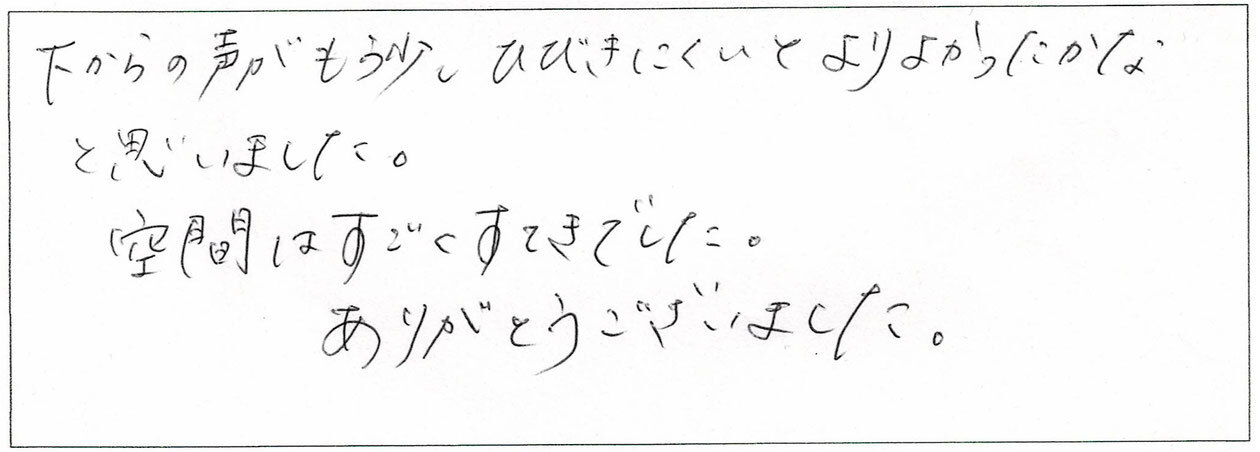 下からの声がもう少しひびきにくいとよりよかったかな
と思いました。
空間はすごくすてきでした。
ありがとうございました。